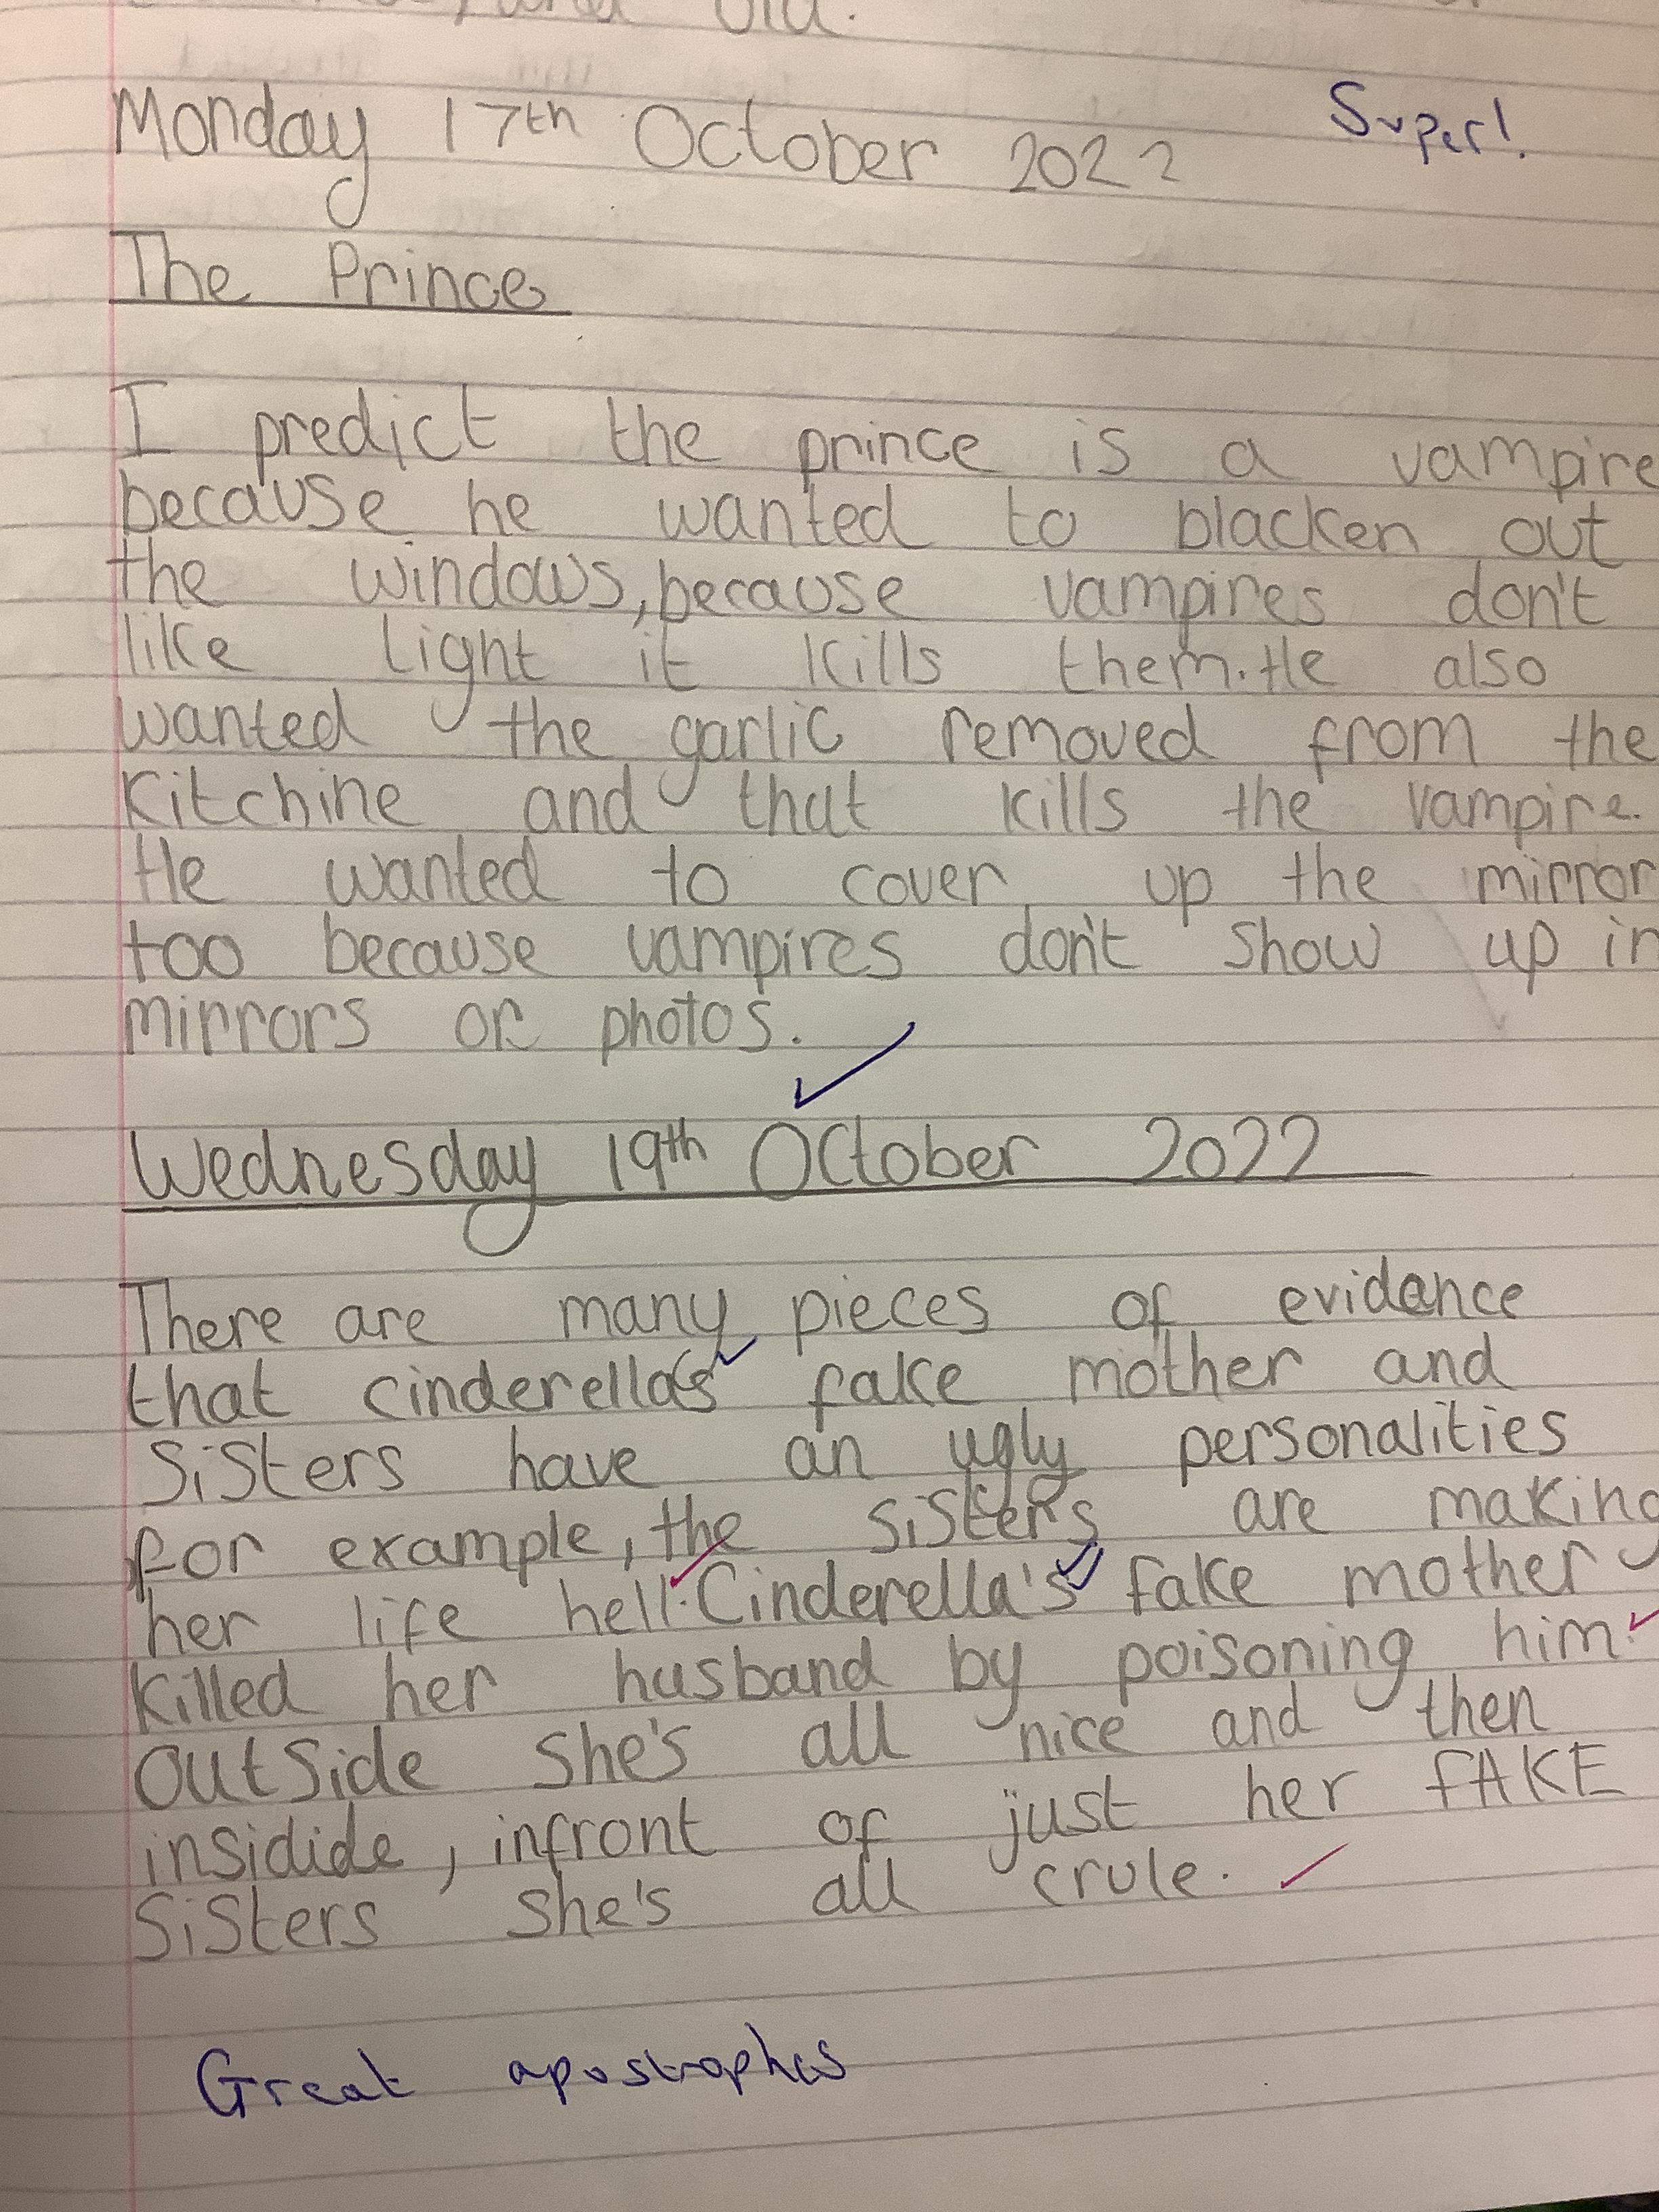 and old.
Monday 17th October 2022 Super!
The Prince
I predict the prince is a vampire
because he wanted to blacken out
the windows, because vampires don't
like light it kills them. He also
wanted the garlic removed from the
Kitchine and that kills the vampire.
He wanted to cover up the mirror
too because vampires don't show up in
mirrors or photos.
Wednesday 19th October 2022
There are many pieces of evidence
that cinderella's fake mother and
sisters have an ugly personalities
for example, the sisters are making
her life hell. Cinderella's fake mother
killed her husband by poisoning him.
outside she's all nice and then
insidide, infront of just her fAKE
sisters she's all crule.
Great apostrophes